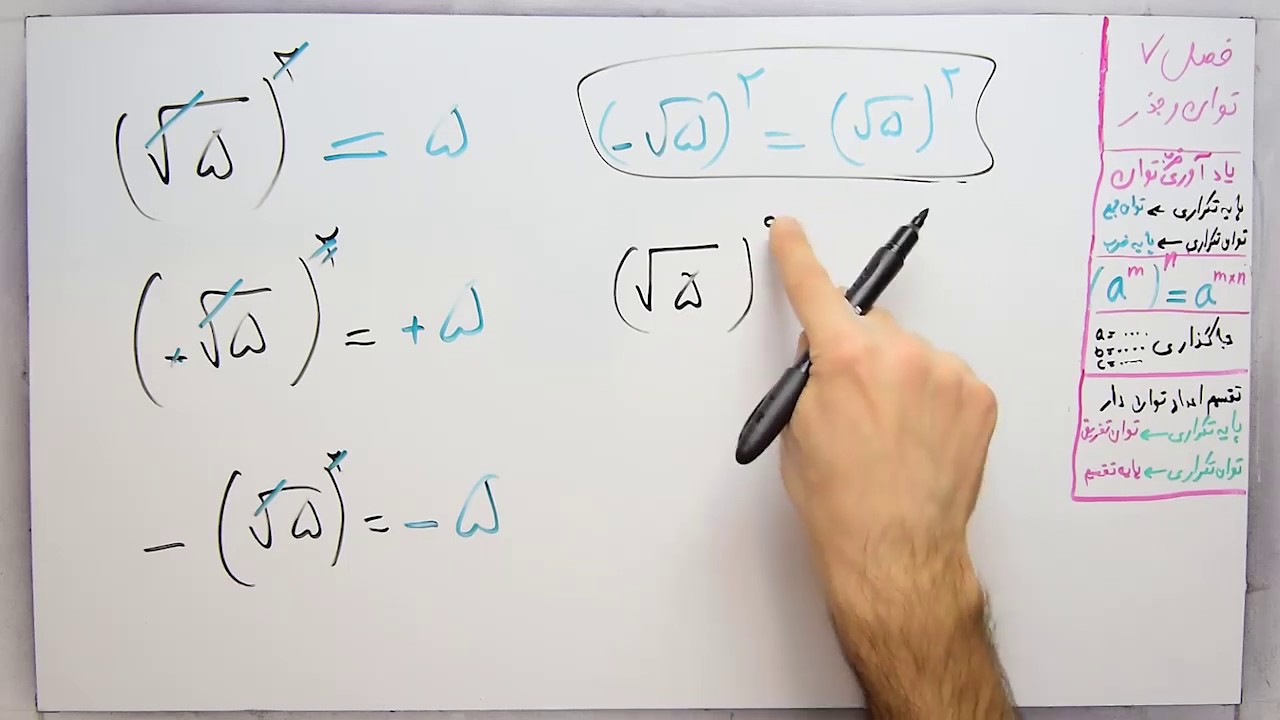 (√۵)^۲ = ۵
(-√۵)^۲ = +۵
-(√۵)^۲ = -۵
(-√۵)^۲ = (√۵)^۲
(√۵)
فصل ۷
توان و جذر
یادآوری ضرب توان
پایه تکراری ← توان جمع
توان تکراری ← پایه ضرب
(a^m)^n = a^m×n
جاگذاری
a=....
b=.....
c=....
تقسیم اعداد توان دار
پایه تکراری ← توان تفریق
توان تکراری ← پایه تقسیم